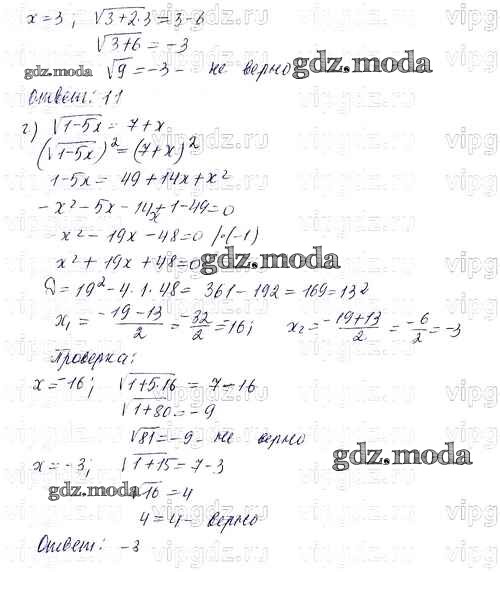 x=3; √3+2·3 = 3-6
√3+6 = -3
gdz.moda √9 = -3 - не верно gdz.moda
Ответ: 11
г) √1-5x = 7+x
(√1-5x)² = (7+x)²
1-5x = 49+14x+x²
-x²-5x-14x+1-49=0
-x²-19x-48=0 /·(-1)
x²+19x+48=0 gdz.moda
D=19²-4·1·48= 361-192=169=13²
x₁ = -19-13/2 = -32/2 = -16; x₂ = -19+13/2 = -6/2 = -3
Проверка:
x=-16; √1+5·16 = 7-16
√1+80 = -9
√81 = -9 - не верно
x=-3; √1+15 = 7-3 gdz.moda
gdz.moda √16 = 4
4=4 - верно
Ответ: -3